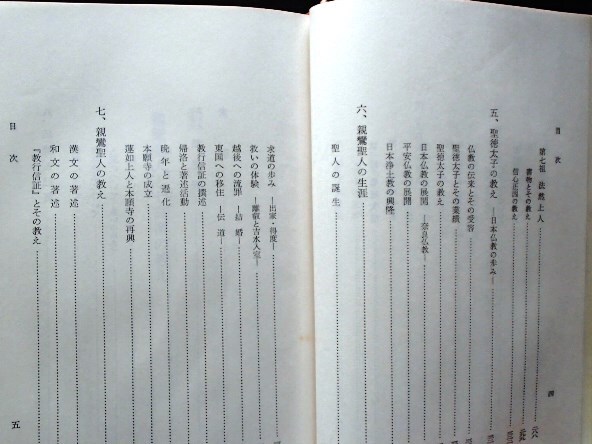 目次
第七祖 法然上人
書物とその教え
信心正因の教え
五、聖徳太子の教え ―日本仏教の歩み―
仏教の伝来とその受容
聖徳太子とその業績
聖徳太子の教え
日本仏教の展開 ―奈良仏教―
平安仏教の展開
日本浄土教の興隆
六、親鸞聖人の生涯
聖人の誕生
四
求道の歩み ―出家・得度―
救いの体験
越後への流罪 ―結婚―
東国への移住 ―伝道―
教行信証の撰述
帰洛と著述活動
晩年と遷化
本願寺の成立
蓮如上人と本願寺の再興
七、親鸞聖人の教え
漢文の著述
和文の著述
『教行信証』とその教え
目次
五